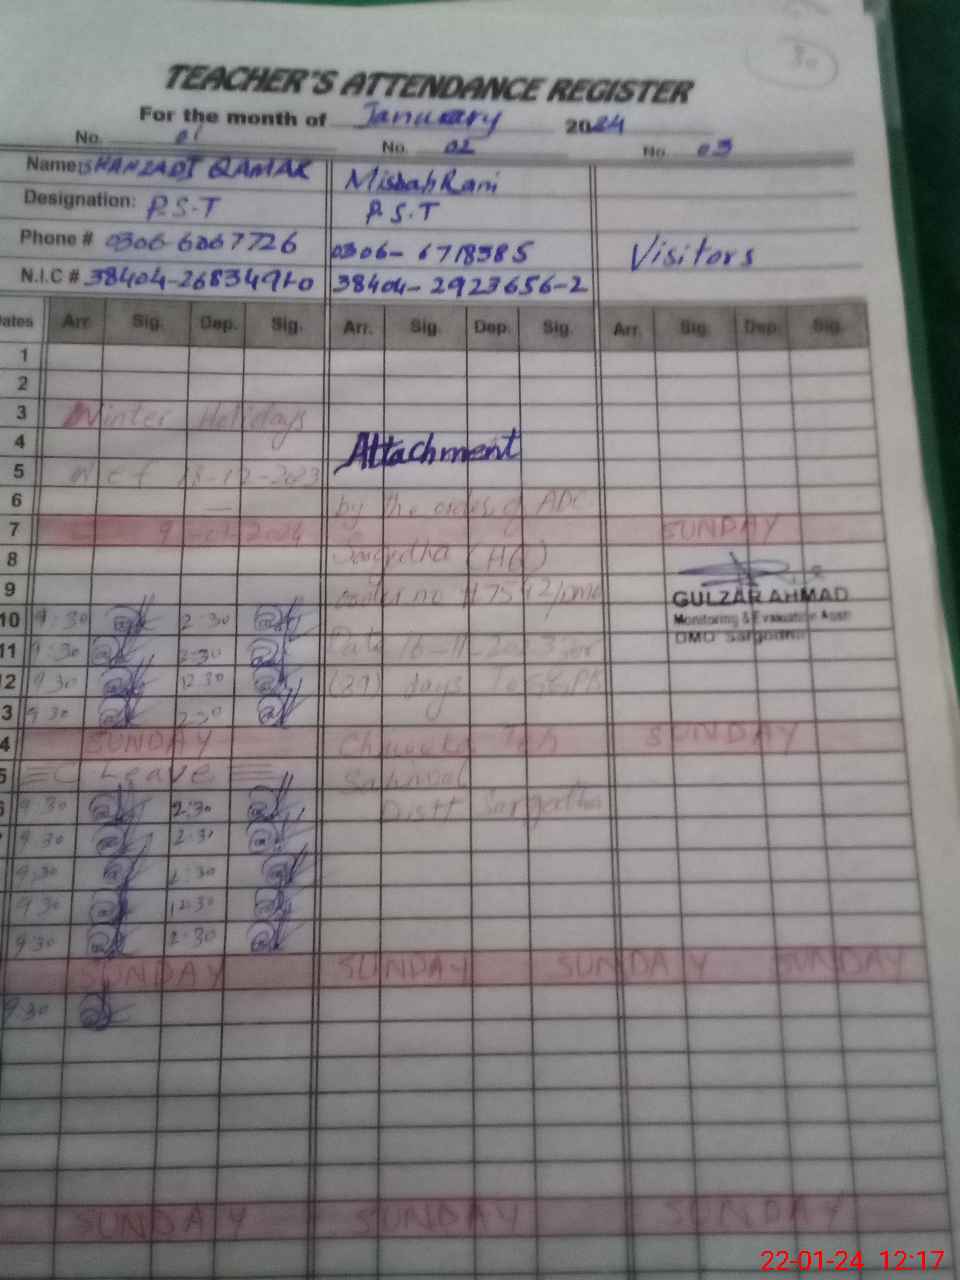 30
TEACHER'S ATTENDANCE REGISTER
For the month of January 2024
No. 01 No. 02 No. 03
Name: SHANZADI QAMAR Misbah Rani
Designation: P.S.T P.S.T
Phone # 0306 6067726 0306-6718385 Visitors
N.I.C # 38404-2683491-0 38404-2923656-2
Dates Arr. Sig. Dep. Sig. Arr. Sig. Dep. Sig. Arr. Sig. Dep. Sig.
1
2
3 Winter Holidays
4 Attachment
5 W.e.f 18-12-2023
6 by the orders of ADC
7 9-01-2024 SUNDAY
8 Sargodha (HQ)
9 no #7542/DMO GULZAR AHMAD
Monitoring & Evaluation Asstt
DMO Sargodha
10 9:30 2:30
11 9:30 2:30 Date 16-11-2023 for
12 9:30 12:30 (29) days To GGPS
3 9:30 2:30
4 SUNDAY SUNDAY
5 C Leave Sahiwal
6 9:30 2:30 Distt Sargodha
9:30 2:30
9:30 2:30
9:30 12:30
9:30 2:30
SUNDAY SUNDAY SUNDAY SUNDAY
9:30
SUNDAY SUNDAY SUNDAY
22-01-24 12:17